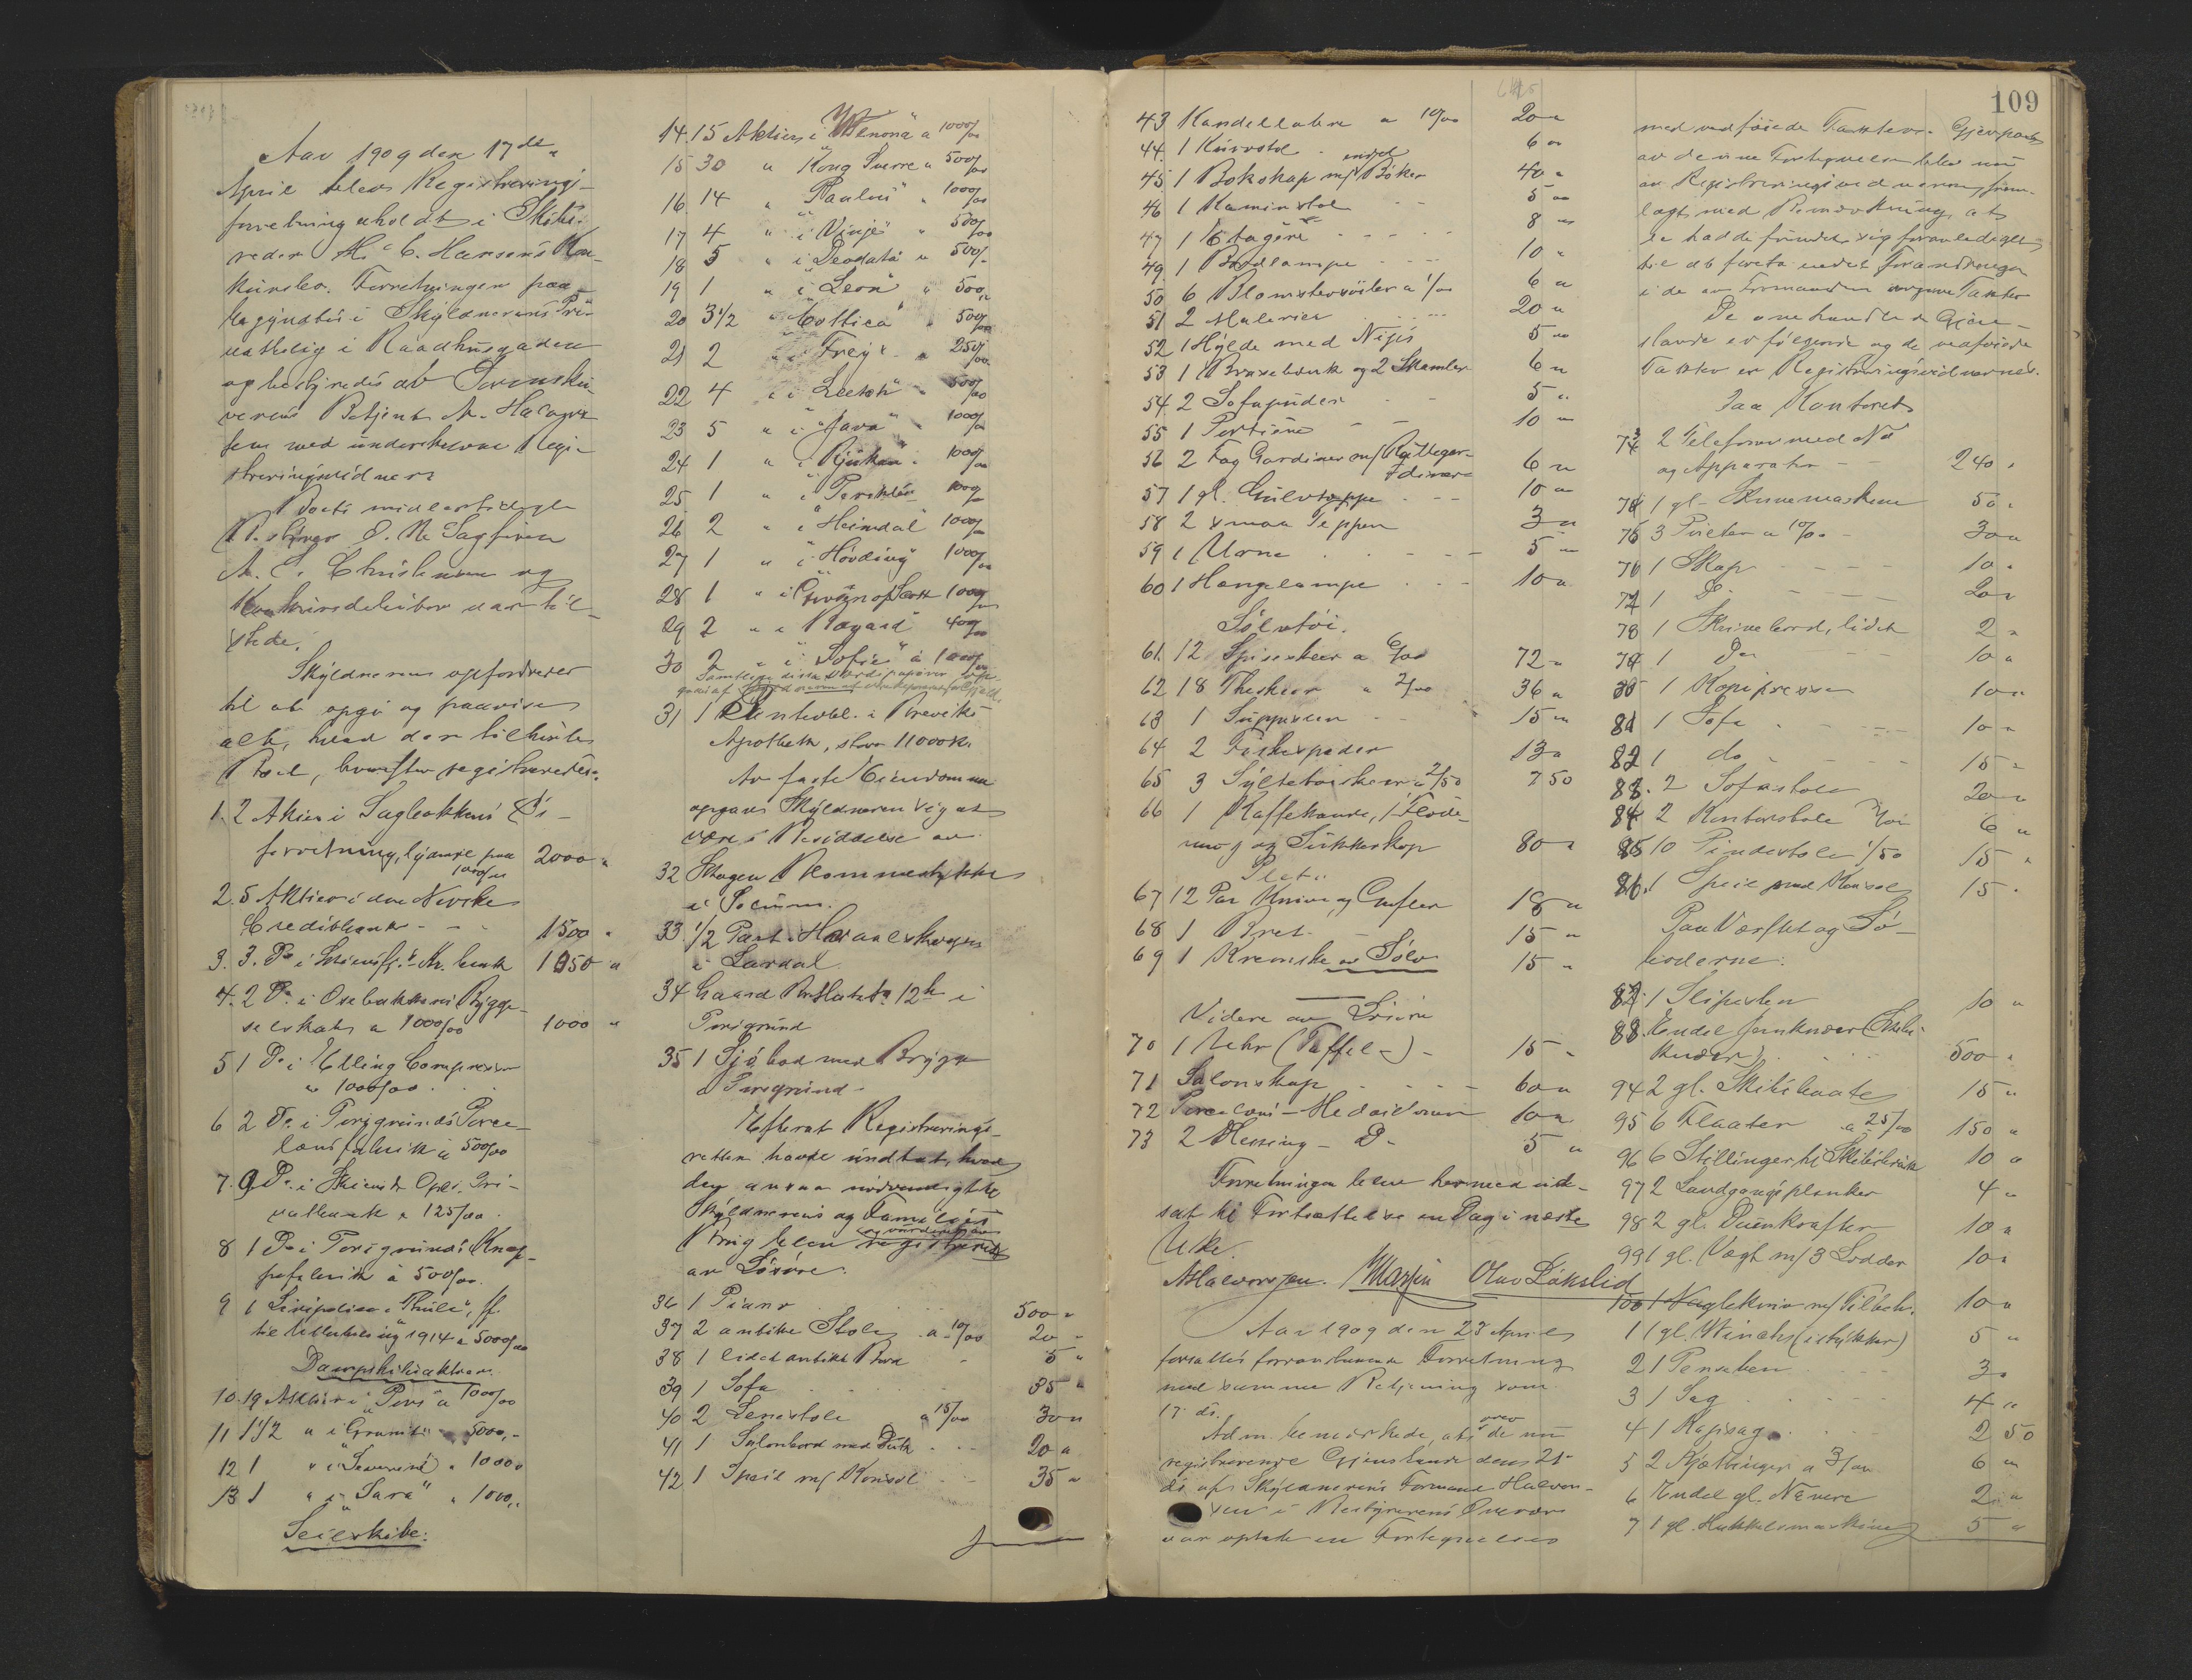 Aar 1909 den 17de
April blev Registrerings-
forretning aholdt i Skibs-
reder H. C. Hansens Kon-
kursbo. Forretningen paa-
begyndtes i Skyldnerens Pri-
vatbolig i Raadhusgaden
og bestyredes af Lensmand
verens Betjent A. Halvor-
sen med underskrevne Regi-
streringsvidner
Boets midlertidige
Bestyrer
A. E. Christensen og
Konkursdebitor var til-
stede.
Skyldneren opfordredes
til at opgi og paavise
alt, hvad der tilhører
Boet, hvorefter registreredes:
1. 2 Aktier i
forretning, lydende paa 2000 "
1000/00
2. 5 Aktier i den Norske
Creditbank - - 1500 "
3. 3 Do i bank 1050 "
4. 2 Do i Osebakkens Bygge-
selskab a 1000/00 1000 "
5 1 Do i Compressor
a 1000/00
6 2 Do i Porsgrunds Porce-
lænsfabrik a 500/00
7. 9 Do i Skiens Opl. Pri-
vatbank a 125/00
8 1 Do i Porsgrunds Knap-
pefabrik à 500/00
9 1 Livspolice i "Thule", ff.
til Utbetaling 1914 a 5000/00
Dampskibsaktier.
10. 19 Aktier i "Pors" a 1000/00
11 1 1/2 " i "Granit" " 5000,-
12 1 " i " 1000 "
13 1 " i "Sara" " 1000,,
Seilskibe:
14. 15 Aktier i "Wenona" a 1000/00
15 30 " "Kong Sverre" " 500/00
16. 14 " "Paulus" " 1000/00
17 4 " i "Vinje" " 500/00
18 5 " i "Deodata" " 500/-
19 1 " i "Leon" " 500,,
20 3 1/2 " "Cottica" " 500/00
21 2 " i "Freya" " 250/00
22 4 " i " 500/00
23 5 " i "Java" " 1000/00
24 1 " i "Rjukan" " 1000/00
25. 1 " i "Perikles" 1000/-
26 2 " i "Heimdal" 1000/-
27 1 " i "Høvding" 1000/00
28 1 " i 1000/00
29 2 " i 400/00
30 2 " i "Sofie" à 1000/00
Samtlige disse Værdipapirer op-
31 1 Panteobl. i Breviks
Apothek, stor 11000 Kr.
Av faste Eiendomme
opgav Skyldneren sig at
være i Besiddelse av
32 Skogen
i Solum.
33. 1/2 Part i
i Lardal
34 Gaard 12b i
Porsgrund
35 1 Sjøbod med Brygge
i Porsgrund -
Efterat Registrerings-
retten havde undtat, hvad
den ansaa nødvendigt til
Skyldnerens og Familiens
Brug blev registreret
og vurderet
av Løsøre:
36 1 Piano 500 "
37 2 antike Stoler a 10/00 20 "
38 1 lidet antikt Bord - 5 "
39 1 Sofa 35 "
40 2 Lenestole a 15/00 30 "
41 1 Salonbord med Duk - - 20 "
42 1 Speil m/ Konsol - - 35 "
43 Kandelabere a 10/00 20 "
44. 1 Kurvstol - 6 "
45 1 Bokskap m/ endel Bøker 40 "
46 1 Kaminstol - - 5 "
47 1 Etagere - - - - 8 "
49. 1 Bordlampe - - - 10 "
50 6 Blomstersøiler a 1/00 6 "
51 2 Malerier 20 "
52 1 Hylde med Nips 5 "
53 1 Broxebænk og 2 Skamler 6 "
54. 2 Sofapuder - - 5 "
55 1 Portiere - - 10 "
56 2 Fag Gardiner m/ Rullegar-
diner 6 "
57 1 gl. Gulvteppe - - 10 "
58 2 smaa Tepper 3 "
59 1 Urne - - - - 5 "
60 1 Hængelampe - - - 10 "
Sølvtøi.
61. 12 Spiseskeer a 6/00 72 "
62 18 Theskeer a 2/00 36 "
63 1 Suppeskee - - 15 "
64 2 Fiskespader 13 "
65 3 Syltetøiskeer a 2/50 7 50
66 1 Kaffekande, 1 Fløde-
mug og Sukkerkop 80 "
Plet:
67 12 Par Knive og Gafler 18 "
68 1 Bret - 15 "
69 1 Kremske av Sølv 15 "
Videre av Løsøre
70 1 Uhr (Taffel-) - 15 "
71 Salonskap - - - - 60 "
72 Porcelæns-Medaljoner 10 "
73 2 Messing - Do 5 "
Forretningen blev hermed ud-
sat til Fortsættelse en Dag i næste
Uke.
AHalvorsen. Olav Løkslid
Aar 1909 den 23 April
fortsattes foranstaaende Forretning
med samme Betjening som
17. ds.
Adm. bemærkede, at over de nu
registrerende Gjenstande den 21-
ds. af Skyldnerens Formand Halvor-
sen i Bestyrerens Nærvær
var optat en Fortegnelse
109
med vedføiede Takster. Gjenpart
av denne Fortegnelse blev nu
av Registreringsvidnerne frem-
lagt med Bemærkning, at
de hadde fundet sig foranlediget
til at foreta endel Forandringer
i de av Formanden opgivne Takster
De omhandlede Gjen-
stande er følgende og de vedføiede
Takster er Registreringsvidnernes.
Paa Kontoret
73 2 Telefoner med No
og Apparater - - 240 "
74 1 gl. Skrivemaskine 50 "
75 3 Pulter a 10/00 - 30 "
76 1 Skap - - - - 10 "
77 1 Do - - - - 20 "
78 1 Skrivebord, lidet 2 "
79 1 Do 10 "
80 1 Kopipresse 10 "
81 1 Sofa - - - - 10 "
82 1 do - - - - 15 "
83. 2 Sofastole 20 "
84 2 Kontorstole 3/00 6 "
85 10 Pindestole 1/50 15 "
86. 1 Speil med Konsol 15 "
Paa Værftet og Sø-
boderne:
87. 1 Slipesten 10 "
88. Endel Jernknær (Skibs-
knær) . . . . 500 "
94 2 gl. Skibsbaate 15 "
95 6 Flaater a 25/00 150 "
96 6 Stillinger til 10 "
97 2 Landgangsplanker 4 "
98 2 gl. Dunkrafter 10 "
99 1 gl. Vægt m/ 3 Lodder 10 "
100 1 Naglekniv m/ Tilbeh. 10 "
1 1 gl. Winch (i stykker) 5 "
2 1 - - 3 "
3 1 Sag - - - - 4 "
4 1 Kapsag - - - 2 50
5 2 Kjættinger a 3/00 6 "
6 Endel gl. Næver 2 "
7 1 gl. Hakkelsmaskine 5 "